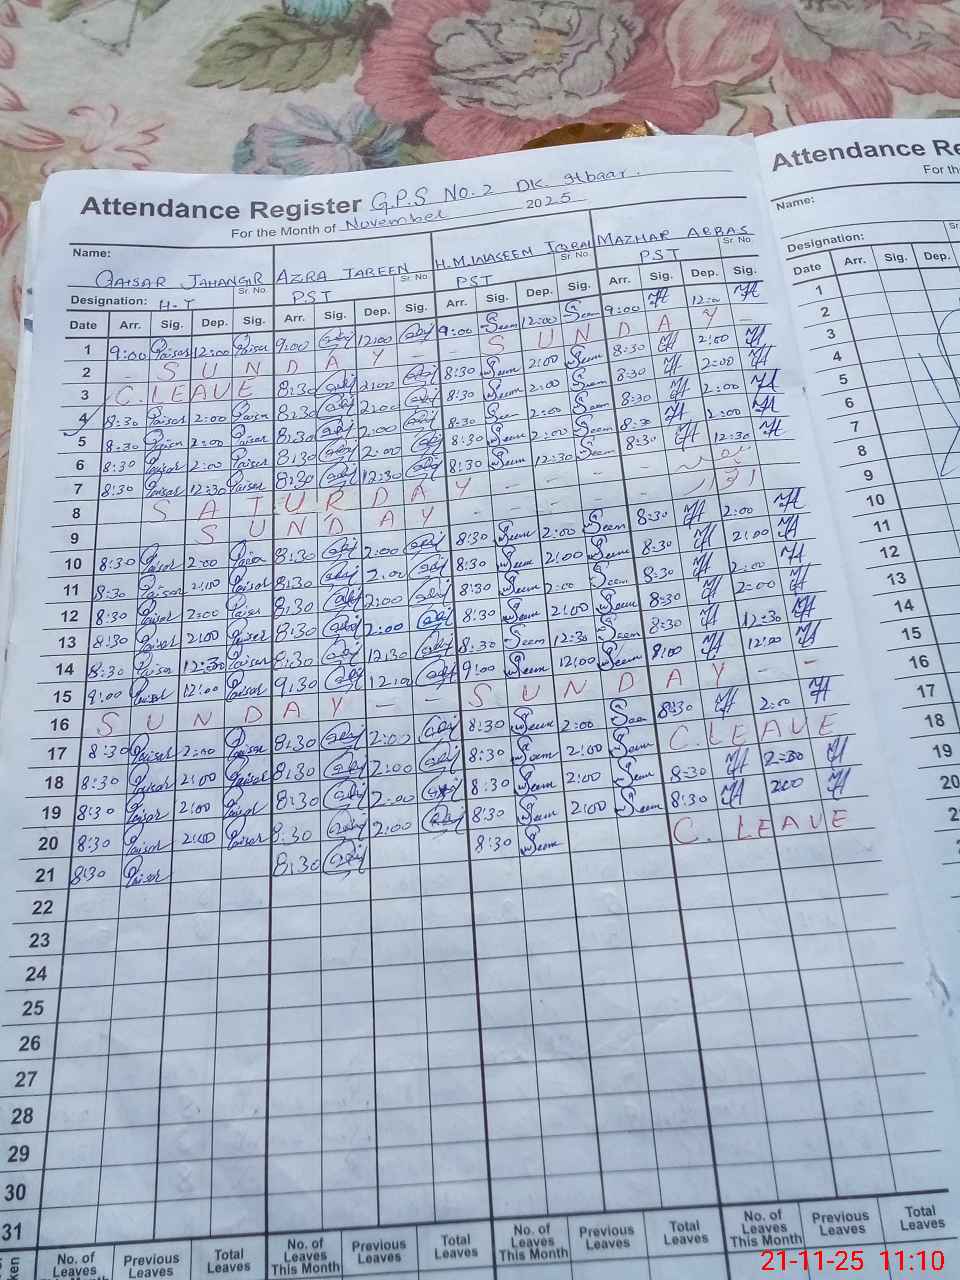 Attendance Register G.P.S No. 2 DK.
For the Month of November 2025
Name: QAISAR JAHANGIR AZRA JABEEN H.M.WASEEM IQBAL MAZHAR ABBAS
Sr. No. Sr. No. Sr. No. Sr. No.
Designation: H-T PST PST PST
Date Arr. Sig. Dep. Sig. Arr. Sig. Dep. Sig. Arr. Sig. Dep. Sig. Arr. Sig. Dep. Sig.
1 9:00 Qaisar 12:00 Qaisar 9:00 12:00 9:00 Seem 12:00 Seem 9:00 12:00
2 - SUNDAY - - SUNDAY -
3 C.LEAVE 8:30 2:00 8:30 Seem 2:00 Seem 8:30 2:00
4 8:30 Qaisar 2:00 Qaisar 8:30 2:00 8:30 Seem 2:00 Seem 8:30 2:00
5 8:30 Qaisar 2:00 Qaisar 8:30 2:00 8:30 Seem 2:00 Seem 8:30 2:00
6 8:30 Qaisar 2:00 Qaisar 8:30 2:00 8:30 Seem 2:00 Seem 8:30 2:00
7 8:30 Qaisar 12:30 Qaisar 8:30 12:30 8:30 Seem 12:30 Seem 8:30 12:30
8 SATURDAY - - - -
9 SUNDAY - - - -
10 8:30 Qaisar 2:00 Qaisar 8:30 2:00 8:30 Seem 2:00 Seem 8:30 2:00
11 8:30 Qaisar 2:00 Qaisar 8:30 2:00 8:30 Seem 2:00 Seem 8:30 2:00
12 8:30 Qaisar 2:00 Qaisar 8:30 2:00 8:30 Seem 2:00 Seem 8:30 2:00
13 8:30 Qaisar 2:00 Qaisar 8:30 2:00 8:30 Seem 2:00 Seem 8:30 2:00
14 8:30 Qaisar 12:30 Qaisar 8:30 12:30 8:30 Seem 12:30 Seem 8:30 12:30
15 9:00 Qaisar 12:00 Qaisar 9:30 12:00 9:00 Seem 12:00 Seem 9:00 12:00
16 SUNDAY - - SUNDAY - -
17 8:30 Qaisar 2:00 Qaisar 8:30 2:00 8:30 Seem 2:00 Seem 8:30 2:00
18 8:30 Qaisar 2:00 Qaisar 8:30 2:00 8:30 Seem 2:00 Seem C.LEAVE
19 8:30 Qaisar 2:00 Qaisar 8:30 2:00 8:30 Seem 2:00 Seem 8:30
20 8:30 Qaisar 2:00 Qaisar 8:30 2:00 8:30 Seem 2:00 Seem 8:30 2:00
21 8:30 Qaisar 8:30 8:30 Seem C. LEAVE
22
23
24
25
26
27
28
29
30
31
No. of Leaves This Month Previous Leaves Total Leaves No. of Leaves This Month Previous Leaves Total Leaves No. of Leaves This Month Previous Leaves Total Leaves No. of Leaves This Month Previous Leaves Total Leaves
Attendance Re
For the
Name:
Designation:
Date Arr. Sig. Dep.
1
2
3
4
5
6
7
8
9
10
11
12
13
14
15
16
17
18
19
20
21-11-25 11:10